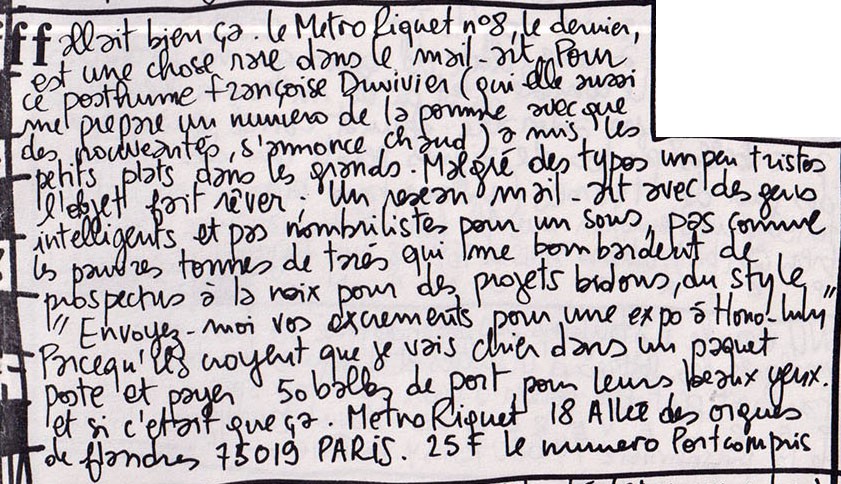 ff allait bien ça. le Metro Riquet n°8, le dernier,
est une chose rare dans le mail-art. Pour
ce posthume Françoise Duvivier (qui elle aussi
me prepare un numero de la pomme avec que
des nouveautés, s'annonce chaud) a mis les
petits plats dans les grands. Malgré des typos un peu tristes
l'objet fait rêver. Un reseau mail-art avec des gens
intelligents et pas nombrilistes pour un sous, pas comme
les pauvres tonnes de tarés qui me bombardent de
prospectus à la noix pour des projets bidons, du style
"Envoyez-moi vos excrements pour une expo à Hono-lulu"
Parcequ'ils croyent que je vais chier dans un paquet
poste et payer 50 balles de port pour leurs beaux yeux.
et si c'etait que ça. Metro Riquet 18 Allée des orgues
de flandres 75019 PARIS. 25F le numero Port compris